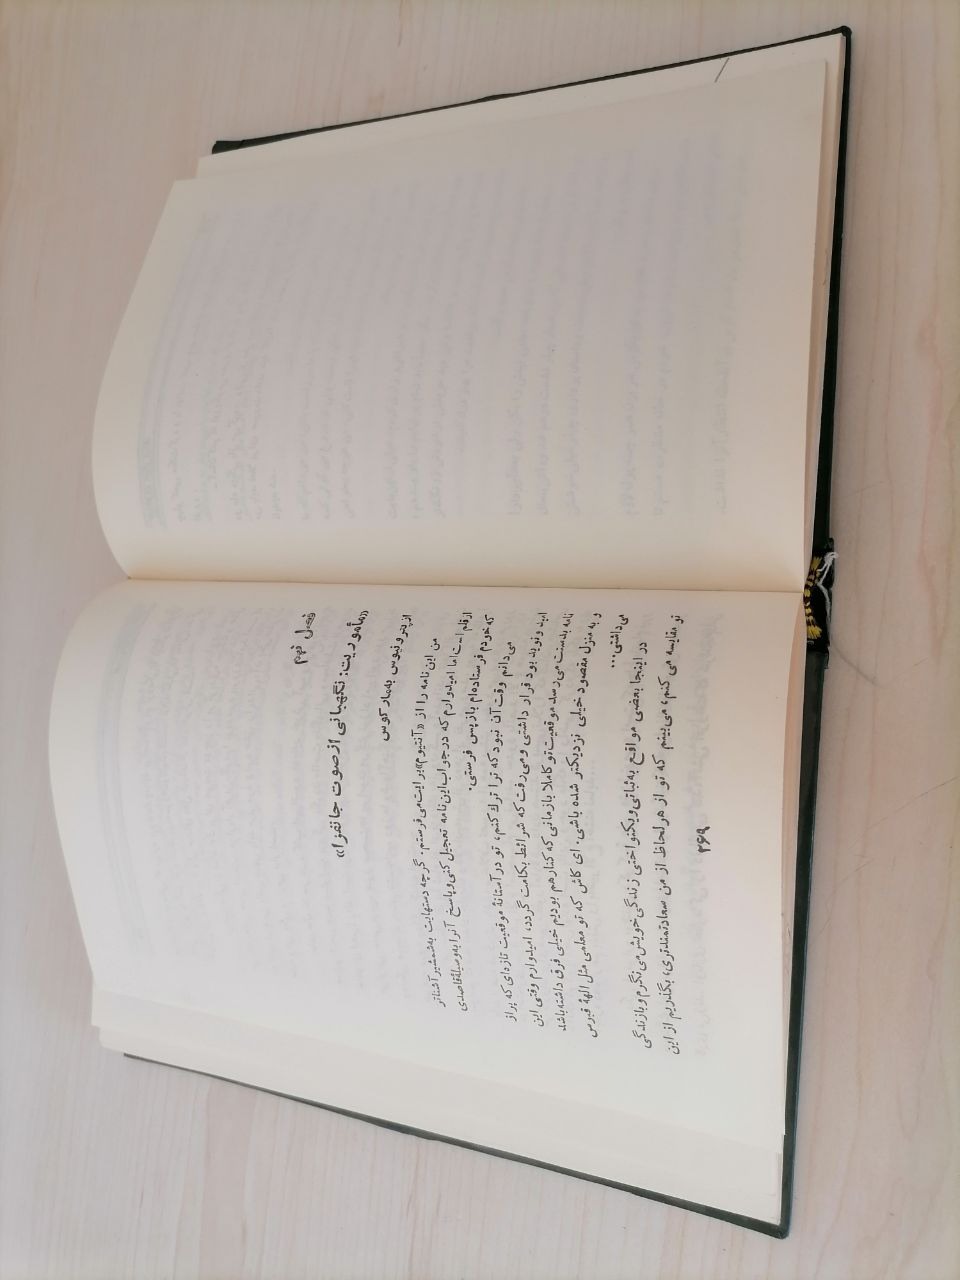 فصل نهم
«مأموریت: نگهبانی از صوت جانفزا»
از پترونیوس به مارکوس
من این نامه را از «آنتیوم» برایت می‌فرستم. گرچه دستهایت به شمشیر آشناتر
از قلم است اما امیدوارم که در جواب این نامه تعجیل کنی و پاسخ آنرا به وسیلهٔ قاصدی
که خودم فرستاده‌ام باز پس فرستی.
می‌دانم وقت آن نبود که ترا ترك کنم، تو در آستانهٔ موقعیت تازه‌ای که پر از
امید و نوید بود قرار داشتی و می‌رفت که شرائط بکامت گردد، امیدوارم وقتی این
نامه بدستت می‌رسد موقعیت تو کاملا بازمانی که کنار هم بودیم خیلی فرق داشته باشد
و به منزل مقصود خیلی نزدیکتر شده باشی. ای کاش که تو معلمی مثل الههٔ قبرس
می‌داشتی...
در اینجا بعضی مواقع به ثباتی و یکنواختی زندگی خویش می‌نگرم و با زندگی
تو مقایسه می‌کنم، می‌بینم که تو از هر لحاظ از من سعادتمندتری، بگذریم از این
۲۶۹